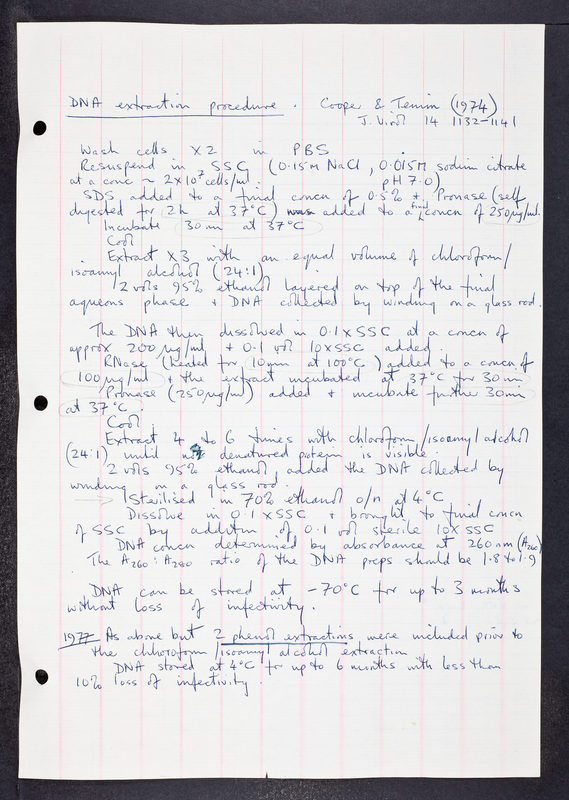 DNA extraction procedure. Cooper & Temin (1974)
J. Virol 14 1132-1141
Wash cells x2 in PBS
Resuspend in SSC (0.15M NaCl, 0.015M sodium citrate
at a conc ~ 2x10⁷ cells/ml. pH 7.0)
SDS added to a final concn of 0.5% + Pronase (self
digested for 2h at 37°C) was added to a final concn of 250µg/ml.
Incubate 30m at 37°C
Cool
Extract x3 with an equal volume of chloroform/
isoamyl alcohol (24:1)
2 vols 95% ethanol layered on top of the final
aqueous phase + DNA collected by winding on a glass rod.
The DNA then dissolved in 0.1xSSC at a concn of
approx 200µg/ml + 0.1 vol 10xSSC added.
RNase (heated for 10min at 100°C) added to a concn of
100µg/ml + the extract incubated at 37°C for 30m
Pronase (250µg/ml) added + incubate further 30m
at 37°C.
Cool
Extract 4 to 6 times with chloroform/isoamyl alcohol
(24:1) until no denatured protein is visible.
2 vols 95% ethanol added the DNA collected by
winding on a glass rod.
Sterilised in 70% ethanol o/n at 4°C
Dissolve in 0.1xSSC + brought to final concn
of SSC by addition of 0.1 vol sterile 10xSSC
DNA concn determined by absorbance at 260nm (A260)
The A260:A280 ratio of the DNA preps should be 1.8 to 1.9
DNA can be stored at -70°C for up to 3 months
without loss of infectivity.
1977 As above but 2 phenol extractions were included prior to
the chloroform/isoamyl alcohol extraction
DNA stored at 4°C for up to 6 months with less than
10% loss of infectivity.